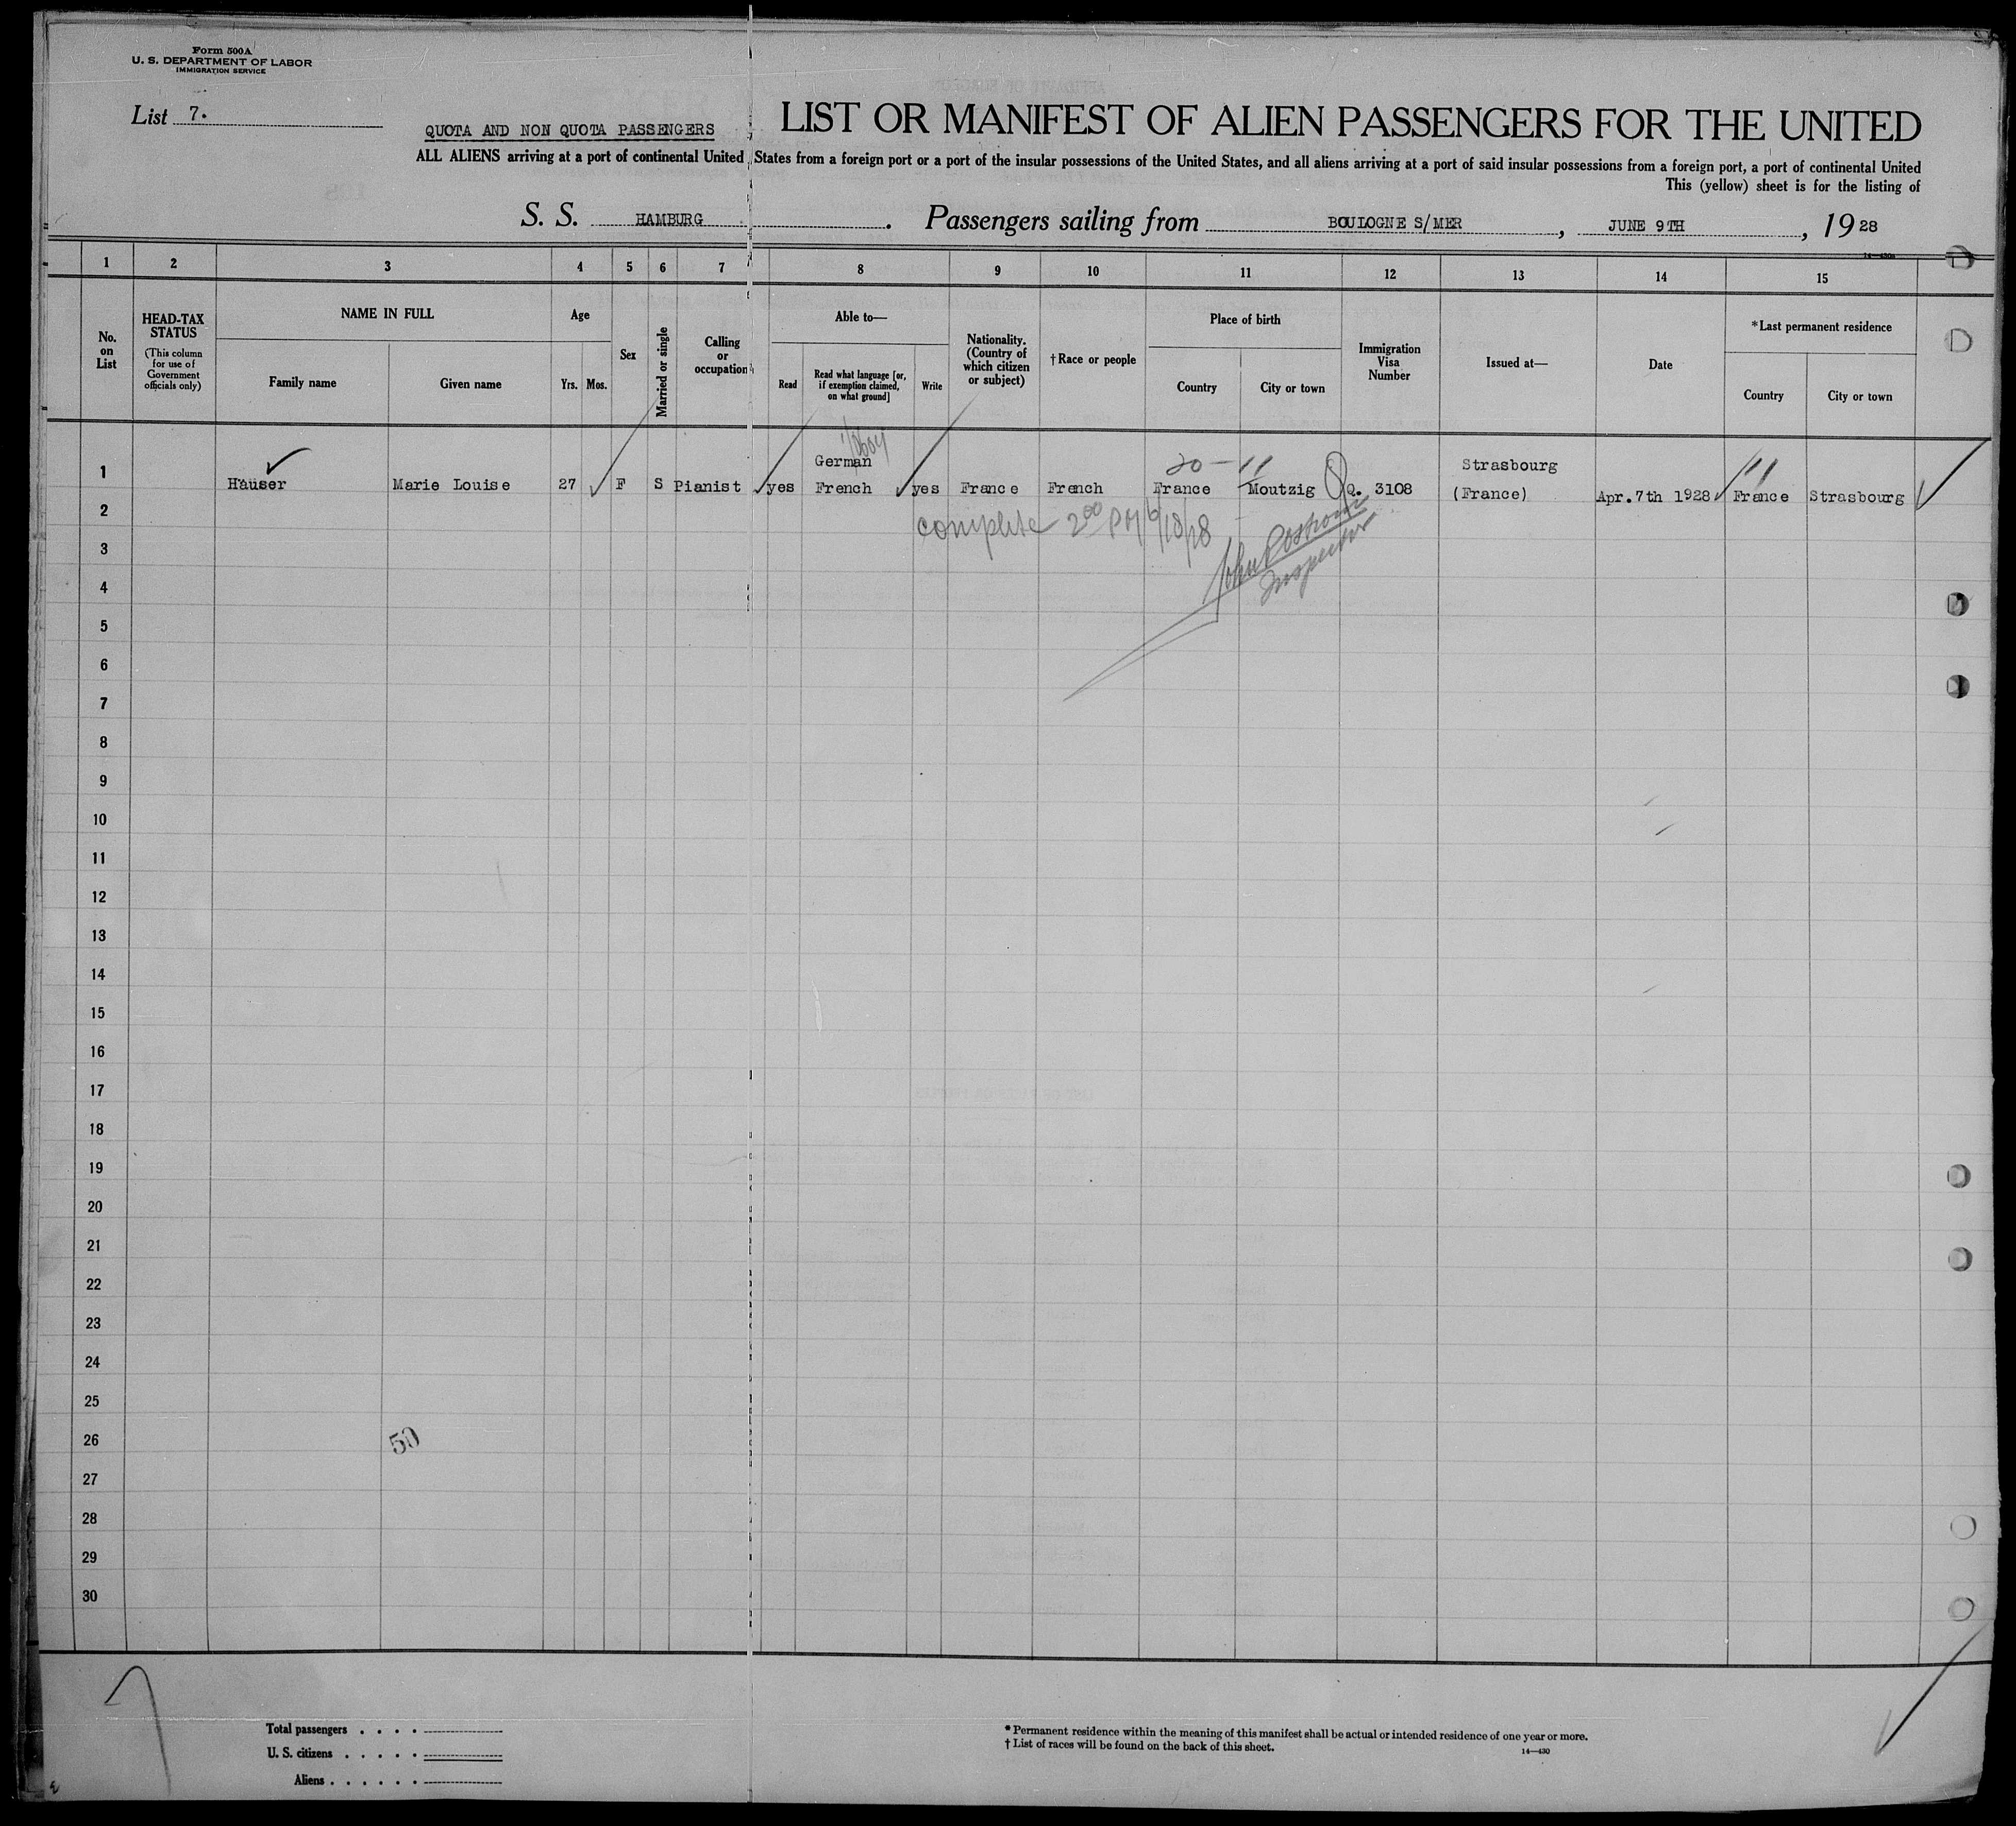 Form 500A
U. S. DEPARTMENT OF LABOR
IMMIGRATION SERVICE
List 7.
QUOTA AND NON QUOTA PASSENGERS
LIST OR MANIFEST OF ALIEN PASSENGERS FOR THE UNITED
ALL ALIENS arriving at a port of continental United States from a foreign port or a port of the insular possessions of the United States, and all aliens arriving at a port of said insular possessions from a foreign port, a port of continental United
This (yellow) sheet is for the listing of
S. S. HAMBURG. Passengers sailing from BOULOGNE S/MER, JUNE 9TH, 1928
1 2 3 4 5 6 7 8 9 10 11 12 13 14 15
No. on List
HEAD-TAX STATUS
(This column for use of Government officials only)
NAME IN FULL
Family name
Given name
Age
Yrs. Mos.
Sex
Married or single
Calling or occupation
Able to—
Read
Read what language [or, if exemption claimed, on what ground]
Write
Nationality. (Country of which citizen or subject)
†Race or people
Place of birth
Country
City or town
Immigration Visa Number
Issued at—
Date
*Last permanent residence
Country
City or town
20-11
German
Strasbourg
1 Häuser Marie Louise 27 F S Pianist yes French yes France French France Moutzig Q. 3108 (France) Apr. 7th 1928 France Strasbourg
complete 2⁰⁰ PM 6/18/28
John
Inspector
2
3
4
5
6
7
8
9
10
11
12
13
14
15
16
17
18
19
20
21
22
23
24
25
26
50
27
28
29
30
Total passengers . . . .
U. S. citizens . . . . .
Aliens . . . . . .
* Permanent residence within the meaning of this manifest shall be actual or intended residence of one year or more.
† List of races will be found on the back of this sheet.
14—430